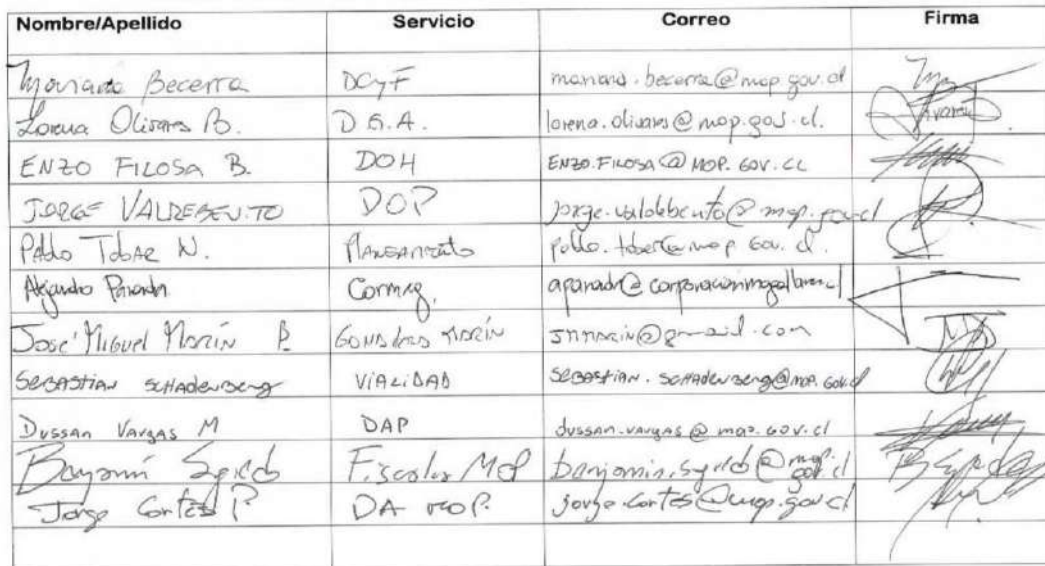 Nombre/Apellido Servicio Correo Firma
Mariana Becerra DCyF mariana.becerra@mop.gov.cl
Lorena Olivares B. D G.A. lorena.olivares@mop.gov.cl.
ENZO FILOSA B. DOH ENZO.FILOSA@MOP.GOV.CL
JORGE VALDEBENITO DOP jorge.valdebenito@mop.gov.cl
Pablo Tobar N. Planeamiento pablo.tobar@mop.gov.cl.
Alejandro Cormag,
José Miguel Marín B. MARÍN jmmarin@gmail.com
SEBASTIAN SCHADENBERG VIALIDAD SEBASTIAN.SCHADENBERG@MOP.GOV.cl
Dussan Vargas M DAP dussan.vargas@mop.gov.cl
Fiscalia MOP
Jorge Cortés P. DA MOP. jorge.cortes@mop.gov.cl